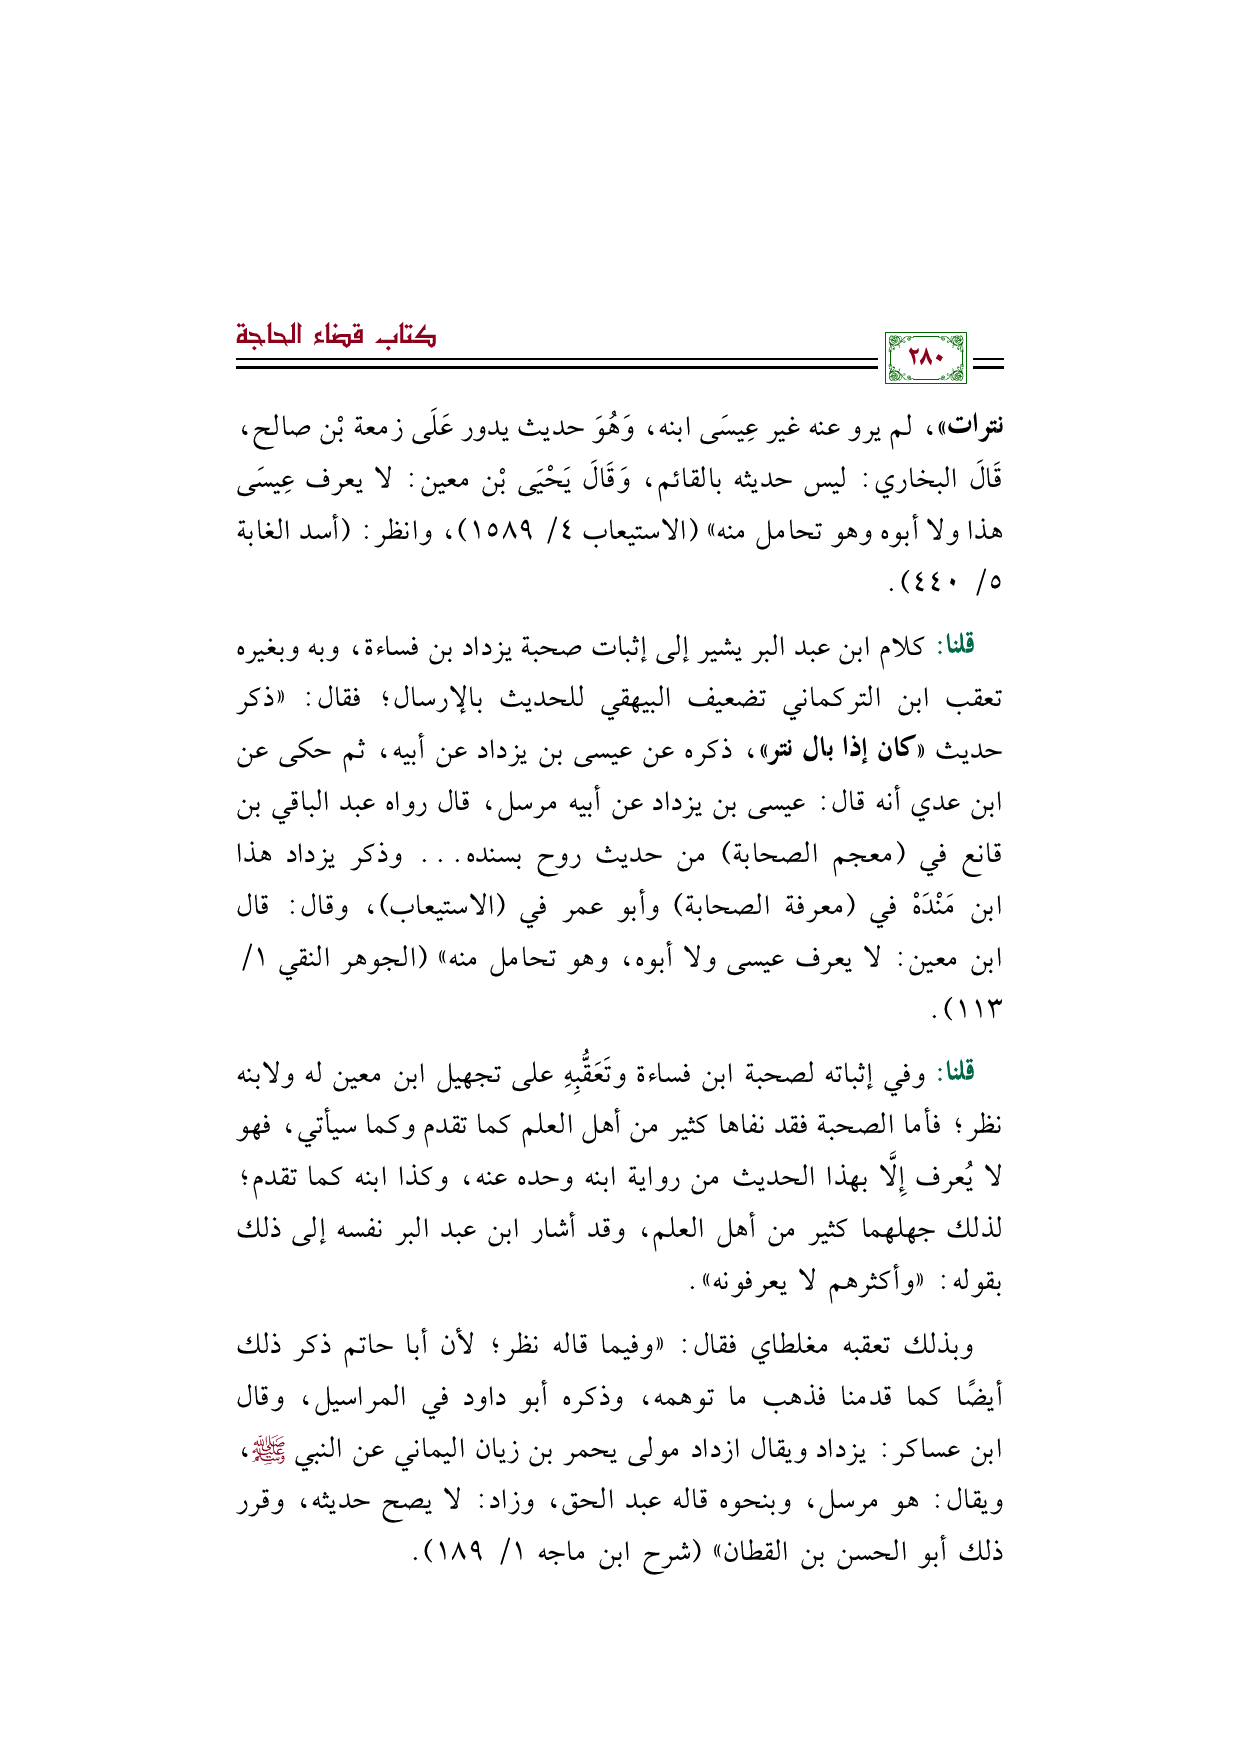 كتاب قضاء الحاجة
٢٨٠
نترات»، لم يرو عنه غير عِيسَى ابنه، وَهُوَ حديث يدور عَلَى زمعة بْن صالح،
قَالَ البخاري: ليس حديثه بالقائم، وَقَالَ يَحْيَى بْن معين: لا يعرف عِيسَى
هذا ولا أبوه وهو تحامل منه» (الاستيعاب ٤/ ١٥٨٩)، وانظر: (أسد الغابة
٥/ ٤٤٠).
قلنا: كلام ابن عبد البر يشير إلى إثبات صحبة يزداد بن فساءة، وبه وبغيره
تعقب ابن التركماني تضعيف البيهقي للحديث بالإرسال؛ فقال: «ذكر
حديث «كان إذا بال نتر»، ذكره عن عيسى بن يزداد عن أبيه، ثم حكى عن
ابن عدي أنه قال: عيسى بن يزداد عن أبيه مرسل، قال رواه عبد الباقي بن
قانع في (معجم الصحابة) من حديث روح بسنده... وذكر يزداد هذا
ابن مَنْدَهْ في (معرفة الصحابة) وأبو عمر في (الاستيعاب)، وقال: قال
ابن معين: لا يعرف عيسى ولا أبوه، وهو تحامل منه» (الجوهر النقي ١/
١١٣).
قلنا: وفي إثباته لصحبة ابن فساءة وتَعَقُّبِهِ على تجهيل ابن معين له ولابنه
نظر؛ فأما الصحبة فقد نفاها كثير من أهل العلم كما تقدم وكما سيأتي، فهو
لا يُعرف إِلَّا بهذا الحديث من رواية ابنه وحده عنه، وكذا ابنه كما تقدم؛
لذلك جهلهما كثير من أهل العلم، وقد أشار ابن عبد البر نفسه إلى ذلك
بقوله: «وأكثرهم لا يعرفونه».
وبذلك تعقبه مغلطاي فقال: «وفيما قاله نظر؛ لأن أبا حاتم ذكر ذلك
أيضًا كما قدمنا فذهب ما توهمه، وذكره أبو داود في المراسيل، وقال
ابن عساكر: يزداد ويقال ازداد مولى يحمر بن زيان اليماني عن النبي ﷺ،
ويقال: هو مرسل، وبنحوه قاله عبد الحق، وزاد: لا يصح حديثه، وقرر
ذلك أبو الحسن بن القطان» (شرح ابن ماجه ١/ ١٨٩).